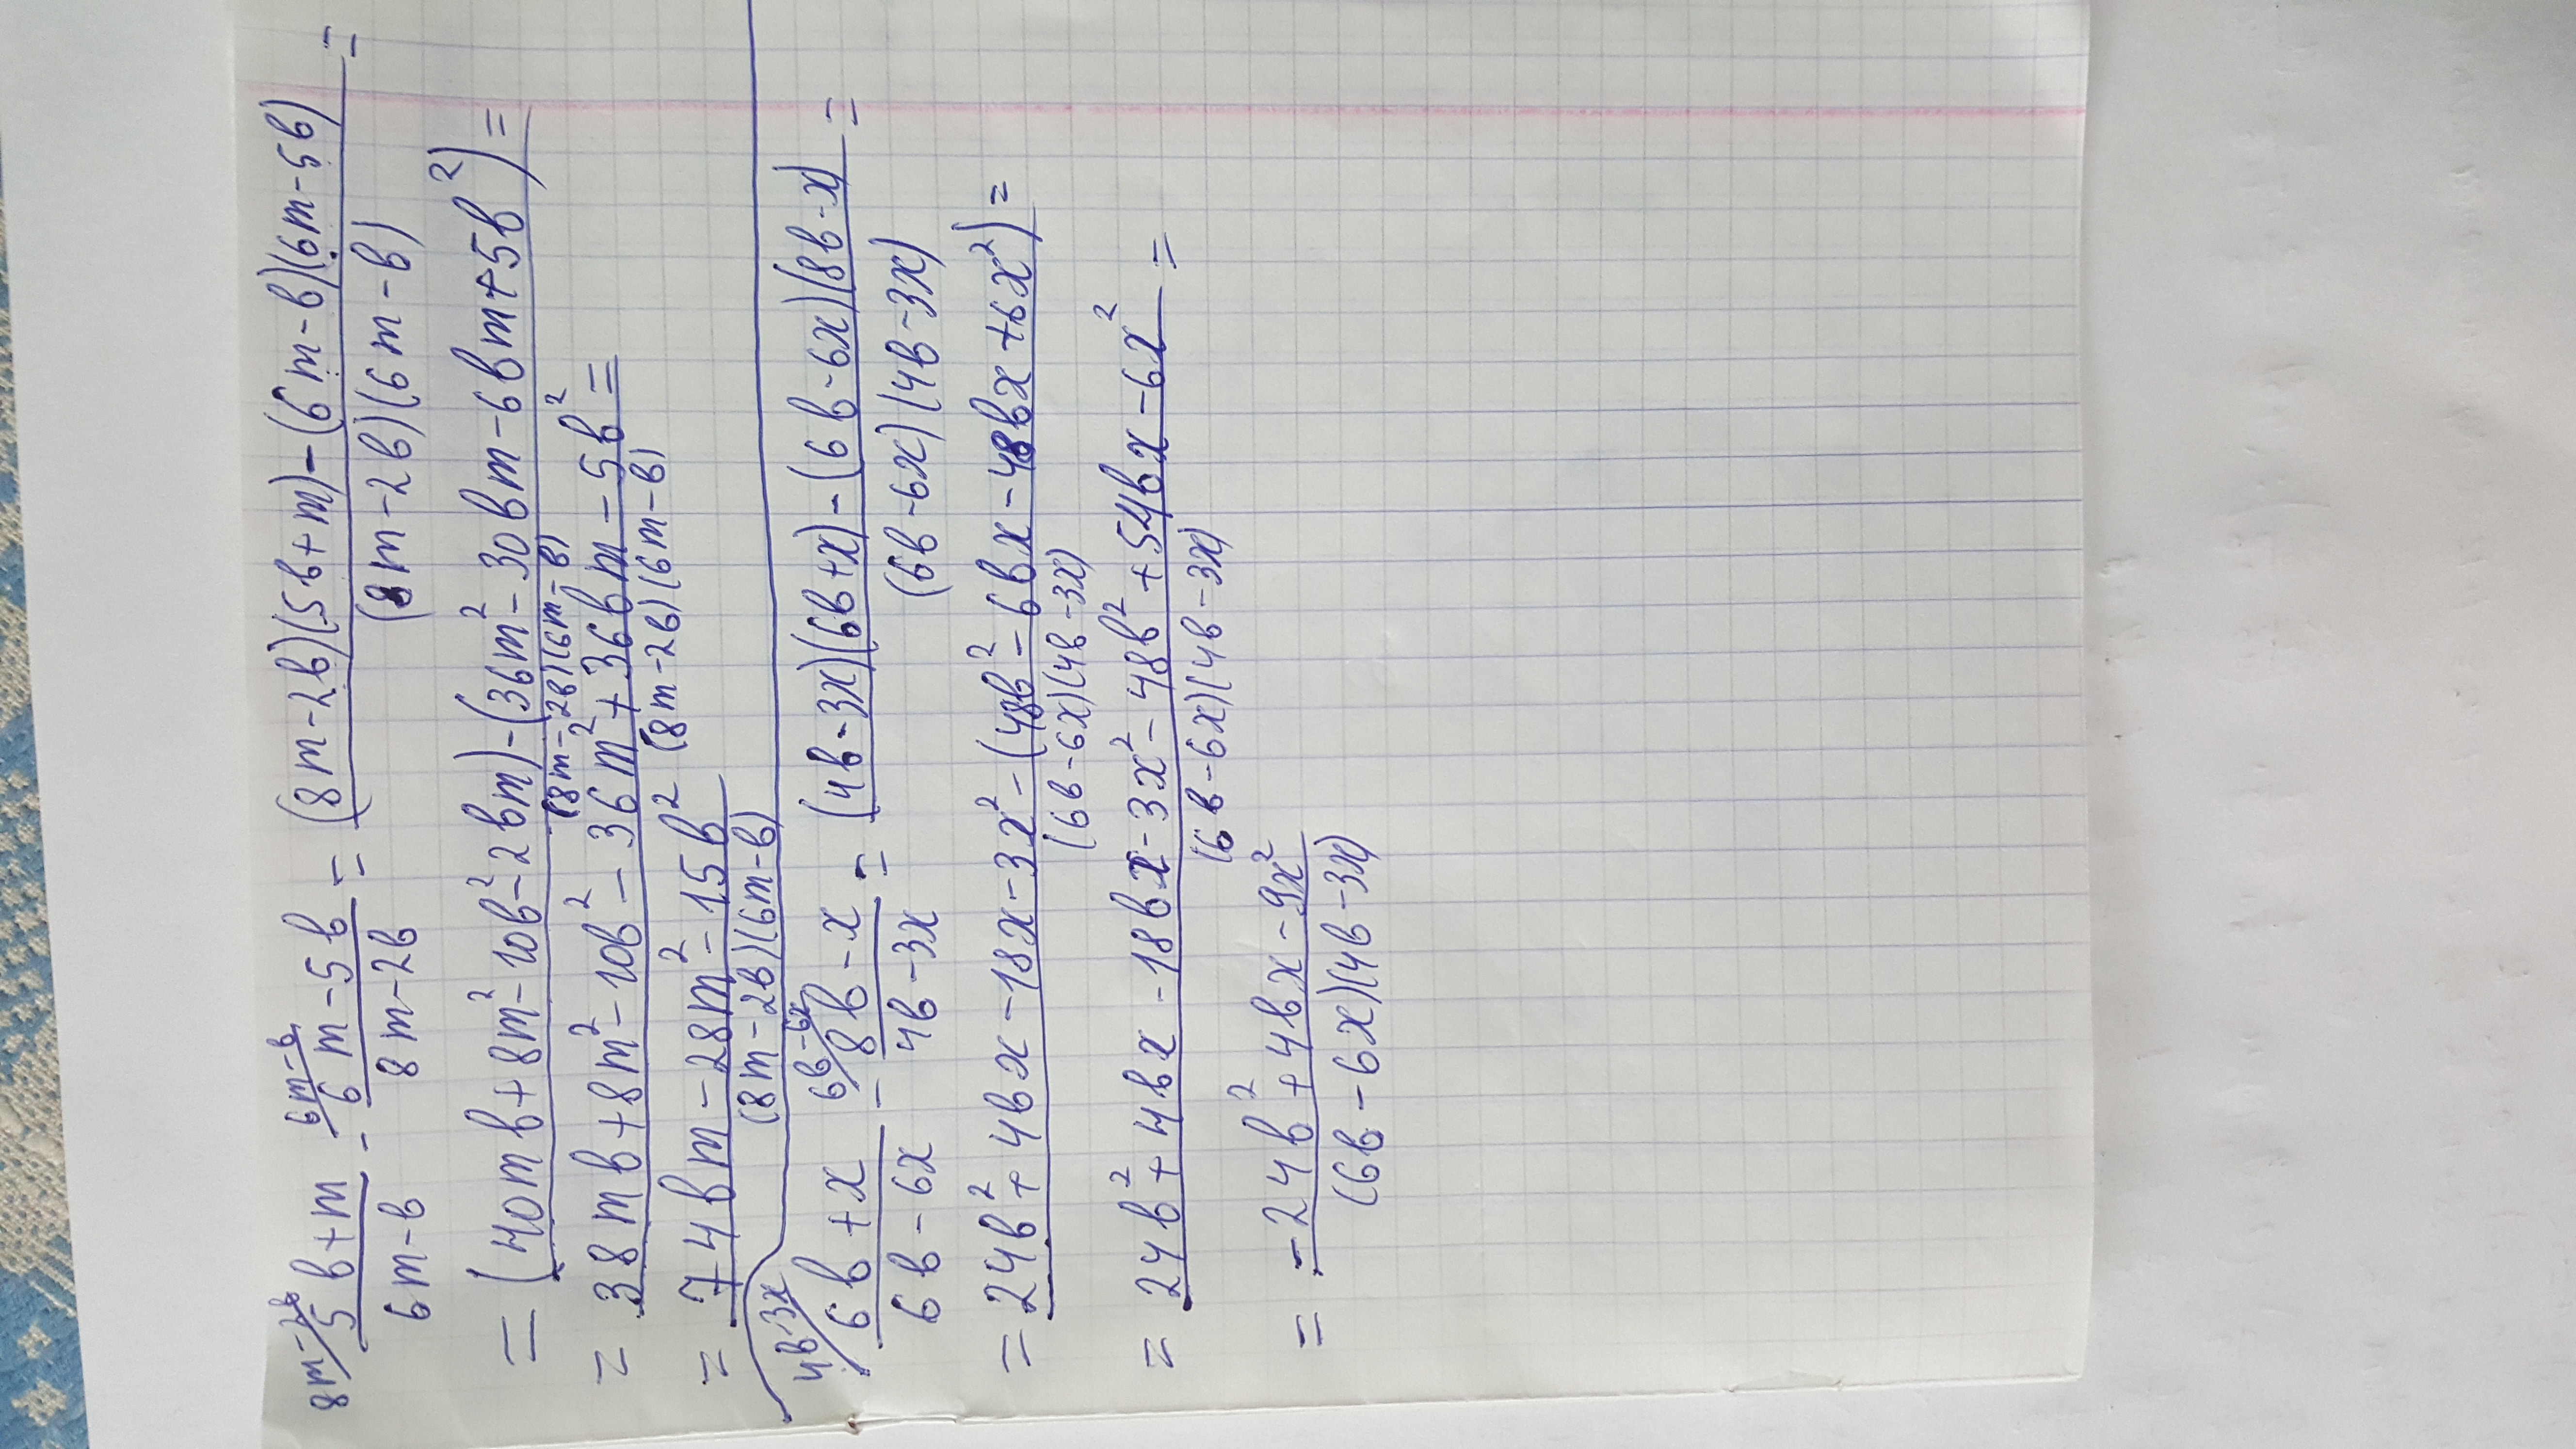 8m-2b/ 5b+m / 6m-b - 6m-b/ 6m-5b / 8m-2b = (8m-2b)(5b+m)-(6m-b)(6m-5b) / (8m-2b)(6m-b) =
= (40mb+8m²-10b²-2bm)-(36m²-30bm-6bm+5b²) / (8m-2b)(6m-b) =
= 38mb+8m²-10b²-36m²+36bm-5b² / (8m-2b)(6m-b) =
= 74bm-28m²-15b² / (8m-2b)(6m-b)
4b-3x/ 6b+x / 6b-6x - 6b-6x/ 8b-x / 4b-3x = (4b-3x)(6b+x)-(6b-6x)(8b-x) / (6b-6x)(4b-3x) =
= 24b²+4bx-18x-3x²-(48b²-6bx-48bx+6x²) / (6b-6x)(4b-3x) =
= 24b²+4bx-18bx-3x²-48b²+54bx-6x² / (6b-6x)(4b-3x) =
= -24b²+4bx-9x² / (6b-6x)(4b-3x)